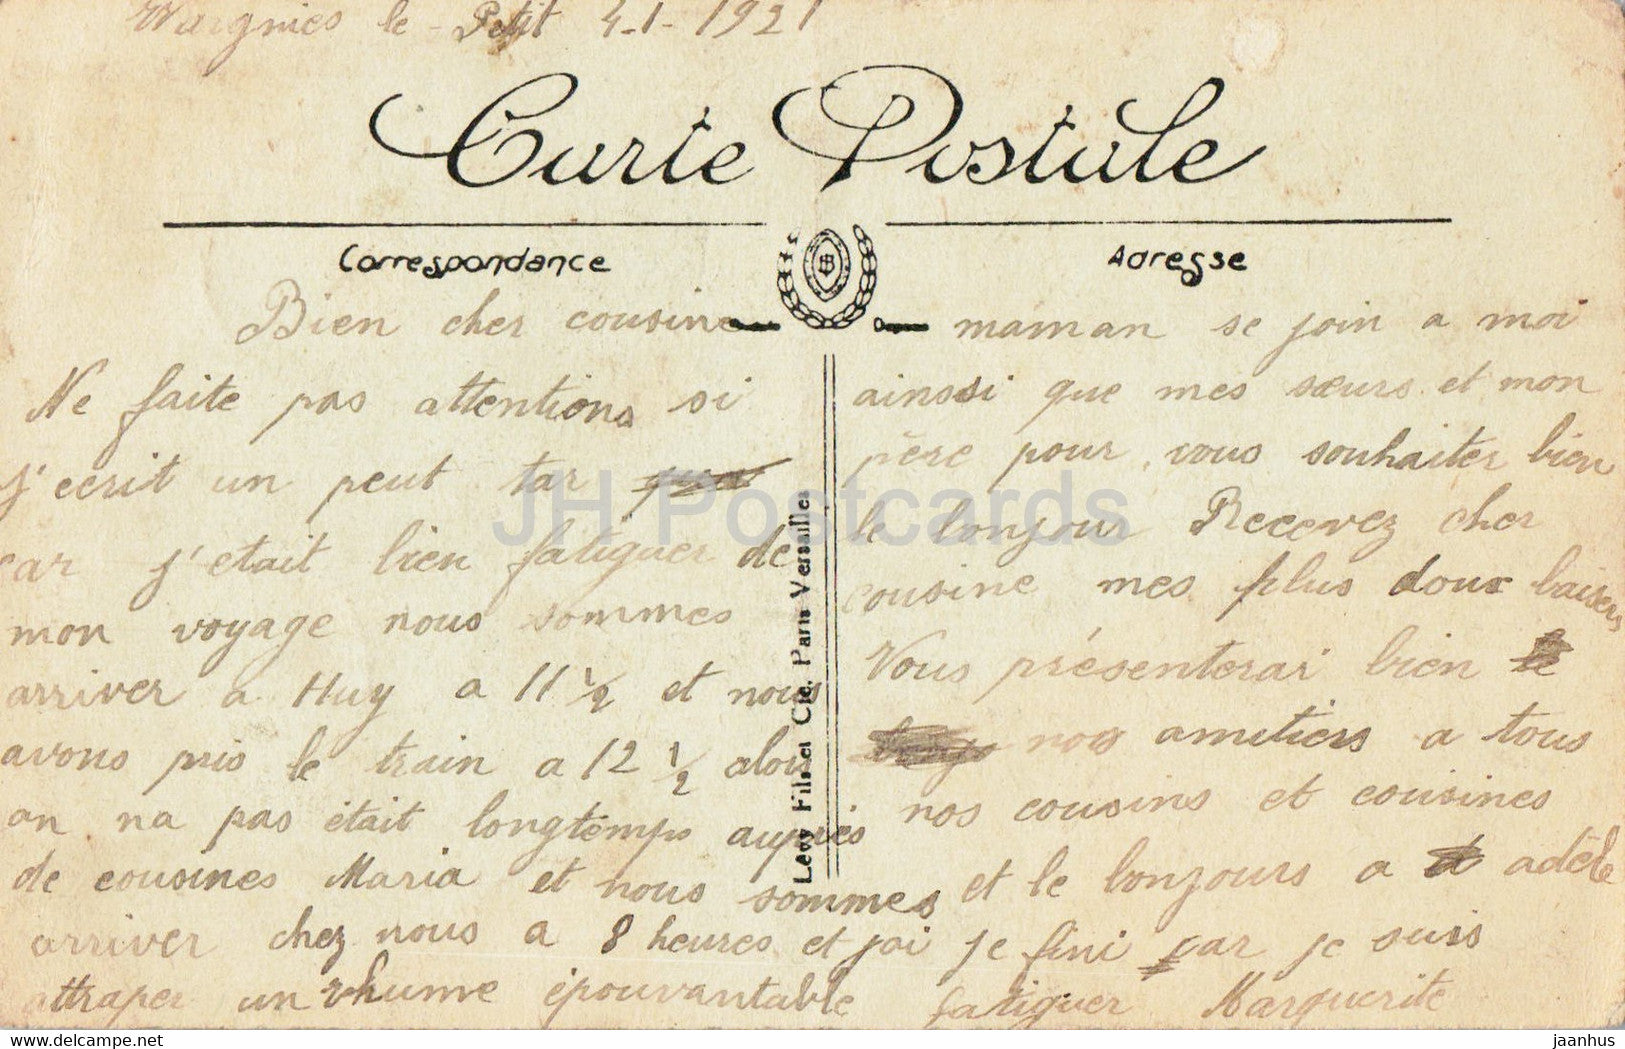 Wargnies le-Petit 4-1-1921
Carte Postale
Correspondance
Adresse
Bien cher cousine
Ne faite pas attentions si
j'ecrit un peut tar
car j'etait bien fatiguer de
mon voyage nous sommes
arriver a Huy a 11 1/2 et nous
avons pris le train a 12 1/2 alors
an na pas était longtemps auprès
de cousines Maria et nous sommes
arriver chez nous a 8 heures et jai
attraper un rhume épouvantable
maman se join a moi
ainssi que mes sœurs et mon
père pour vous souhaiter bien
le bonjour Recevez cher
cousine mes plus doux baisers
Vous présenterai bien
nos amitiers a tous
nos cousins et cousines
et le bonjours a adèle
je fini car je suis
fatiguer Marguerite
Levy Fils et Cie. Paris Versailles
JH Postcards
hippostcard.com
jaanhus